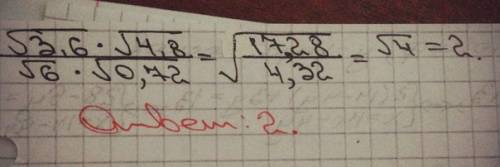 √3,6 · √4,8 / √6 · √0,72 = √17,28 / 4,32 = √4 = 2.
Ответ: 2.